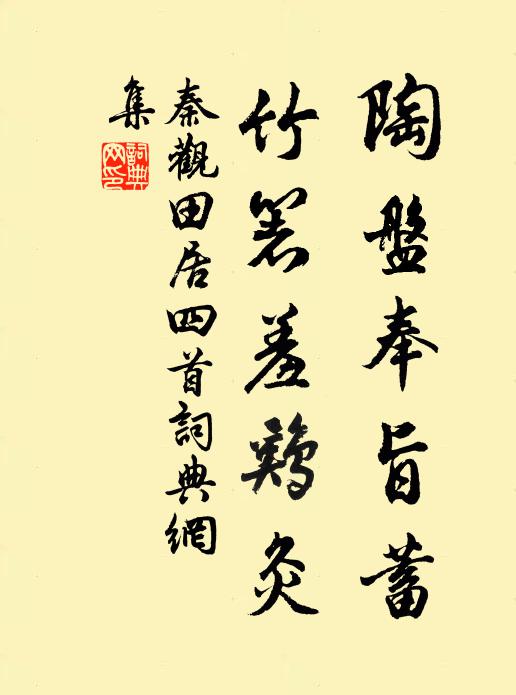 陶盤奉旨蓄
竹箸羞鷄炙
秦觀田居四首詞典網
集
詞典
网印